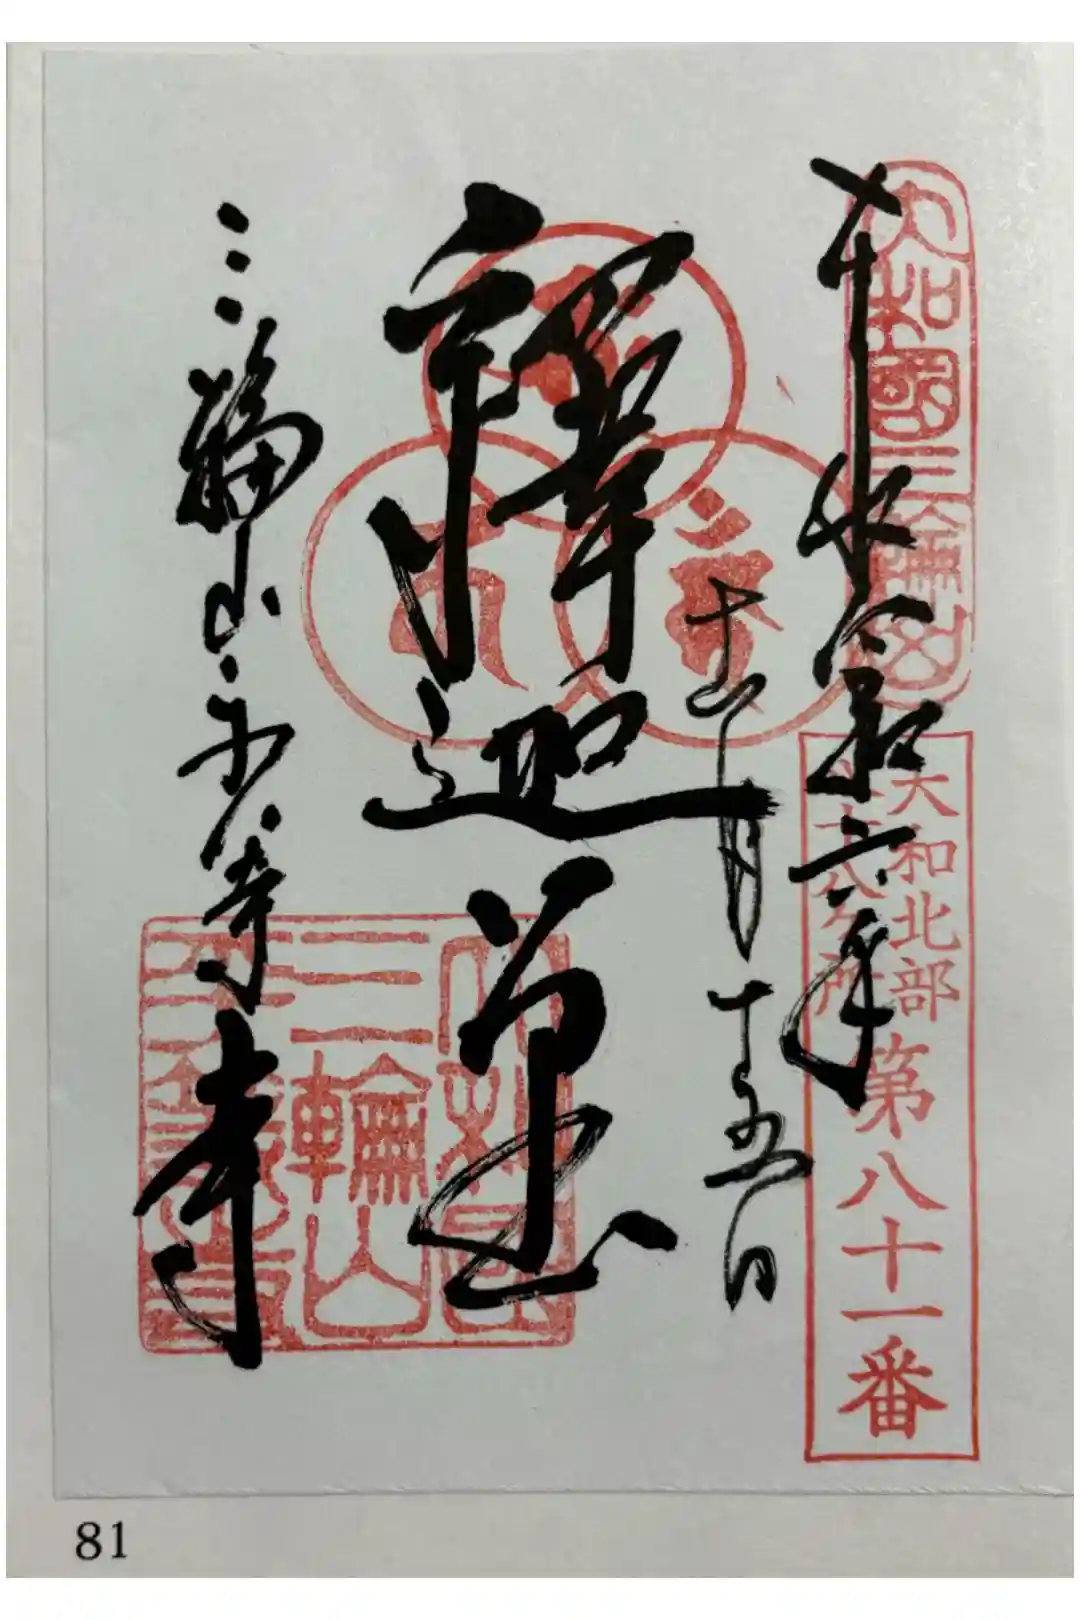 奉拝
令和六年
大和國三輪山
大和北部
八十八ヶ所
第八十一番
十二月
十五日
釋迦尊
三輪山平等寺
大和国
三輪山
平等寺
81